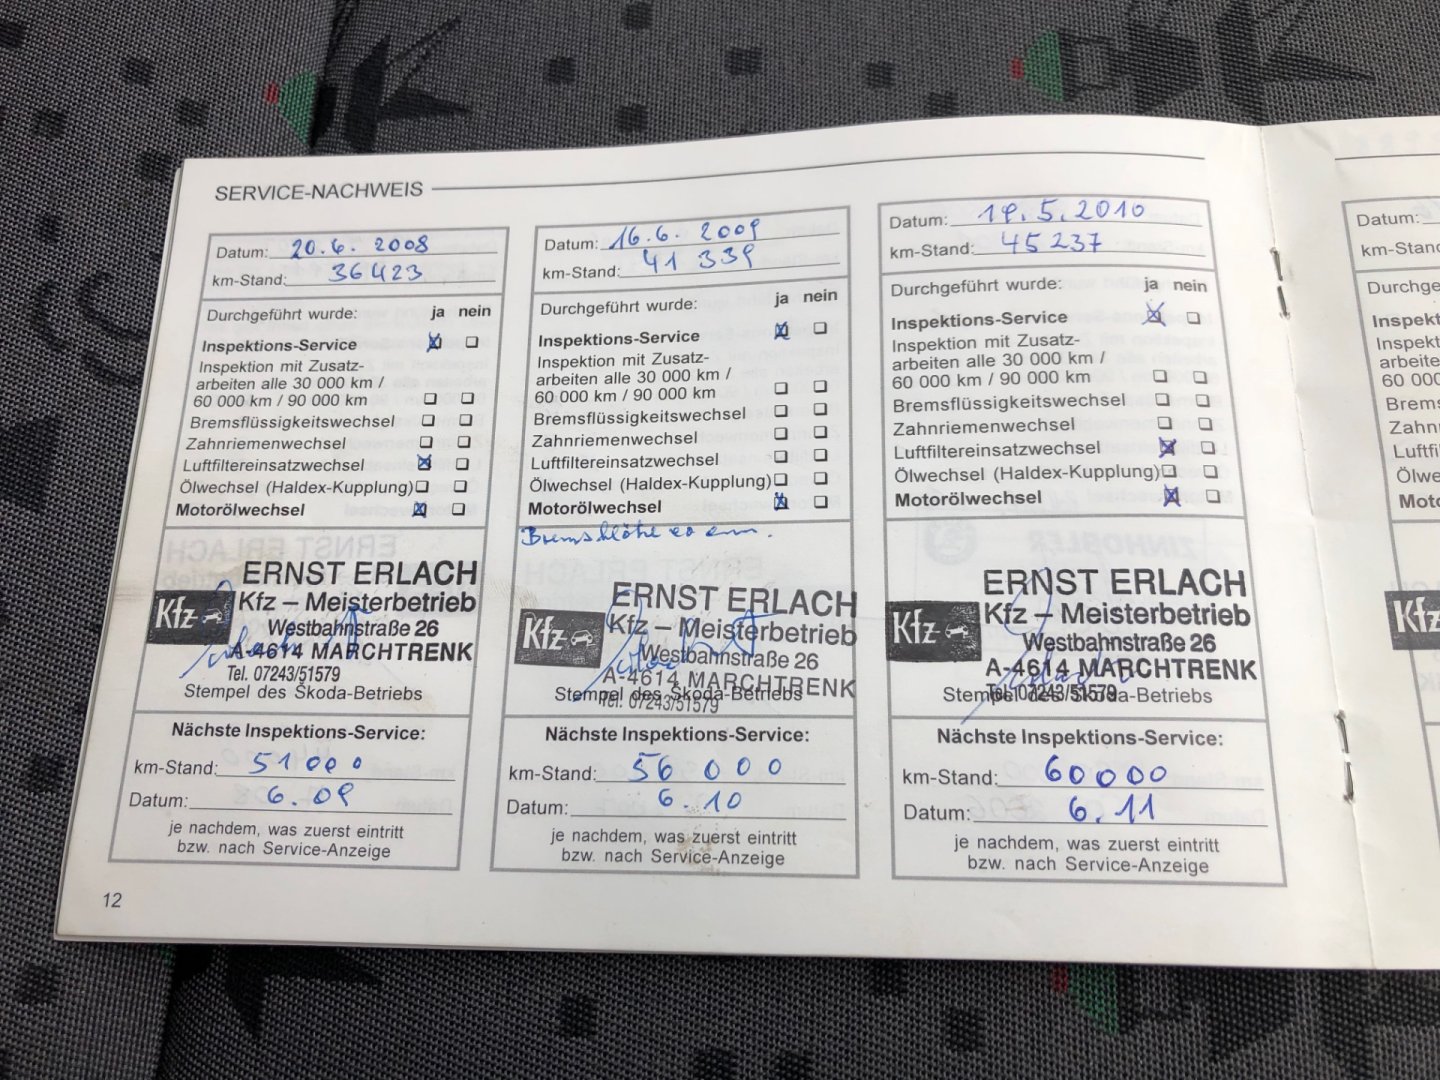 SERVICE-NACHWEIS
Datum: 20.6. 2008
km-Stand: 36423
Durchgeführt wurde: ja nein
Inspektions-Service
Inspektion mit Zusatz-
arbeiten alle 30 000 km /
60 000 km / 90 000 km
Bremsflüssigkeitswechsel
Zahnriemenwechsel
Luftfiltereinsatzwechsel
Ölwechsel (Haldex-Kupplung)
Motorölwechsel
ERNST ERLACH
Kfz Kfz – Meisterbetrieb
Westbahnstraße 26
A-4614 MARCHTRENK
Tel. 07243/51579
Stempel des Škoda-Betriebs
Nächste Inspektions-Service:
km-Stand: 51000
Datum: 6.09
je nachdem, was zuerst eintritt
bzw. nach Service-Anzeige
12
Datum: 16.6. 2009
km-Stand: 41 339
Durchgeführt wurde: ja nein
Inspektions-Service
Inspektion mit Zusatz-
arbeiten alle 30 000 km /
60 000 km / 90 000 km
Bremsflüssigkeitswechsel
Zahnriemenwechsel
Luftfiltereinsatzwechsel
Ölwechsel (Haldex-Kupplung)
Motorölwechsel
ERNST ERLACH
Kfz Kfz – Meisterbetrieb
Westbahnstraße 26
A-4614 MARCHTRENK
Stempel des Škoda-Betriebs
Tel. 07243/51579
Nächste Inspektions-Service:
km-Stand: 56 000
Datum: 6.10
je nachdem, was zuerst eintritt
bzw. nach Service-Anzeige
Datum: 19.5.2010
km-Stand: 45237
Durchgeführt wurde: ja nein
Inspektions-Service
Inspektion mit Zusatz-
arbeiten alle 30 000 km /
60 000 km / 90 000 km
Bremsflüssigkeitswechsel
Zahnriemenwechsel
Luftfiltereinsatzwechsel
Ölwechsel (Haldex-Kupplung)
Motorölwechsel
ERNST ERLACH
Kfz Kfz – Meisterbetrieb
Westbahnstraße 26
A-4614 MARCHTRENK
Tel. 07243/51579
Stempel des Škoda-Betriebs
Nächste Inspektions-Service:
km-Stand: 60000
Datum: 6.11
je nachdem, was zuerst eintritt
bzw. nach Service-Anzeige
Datum:
Kfz